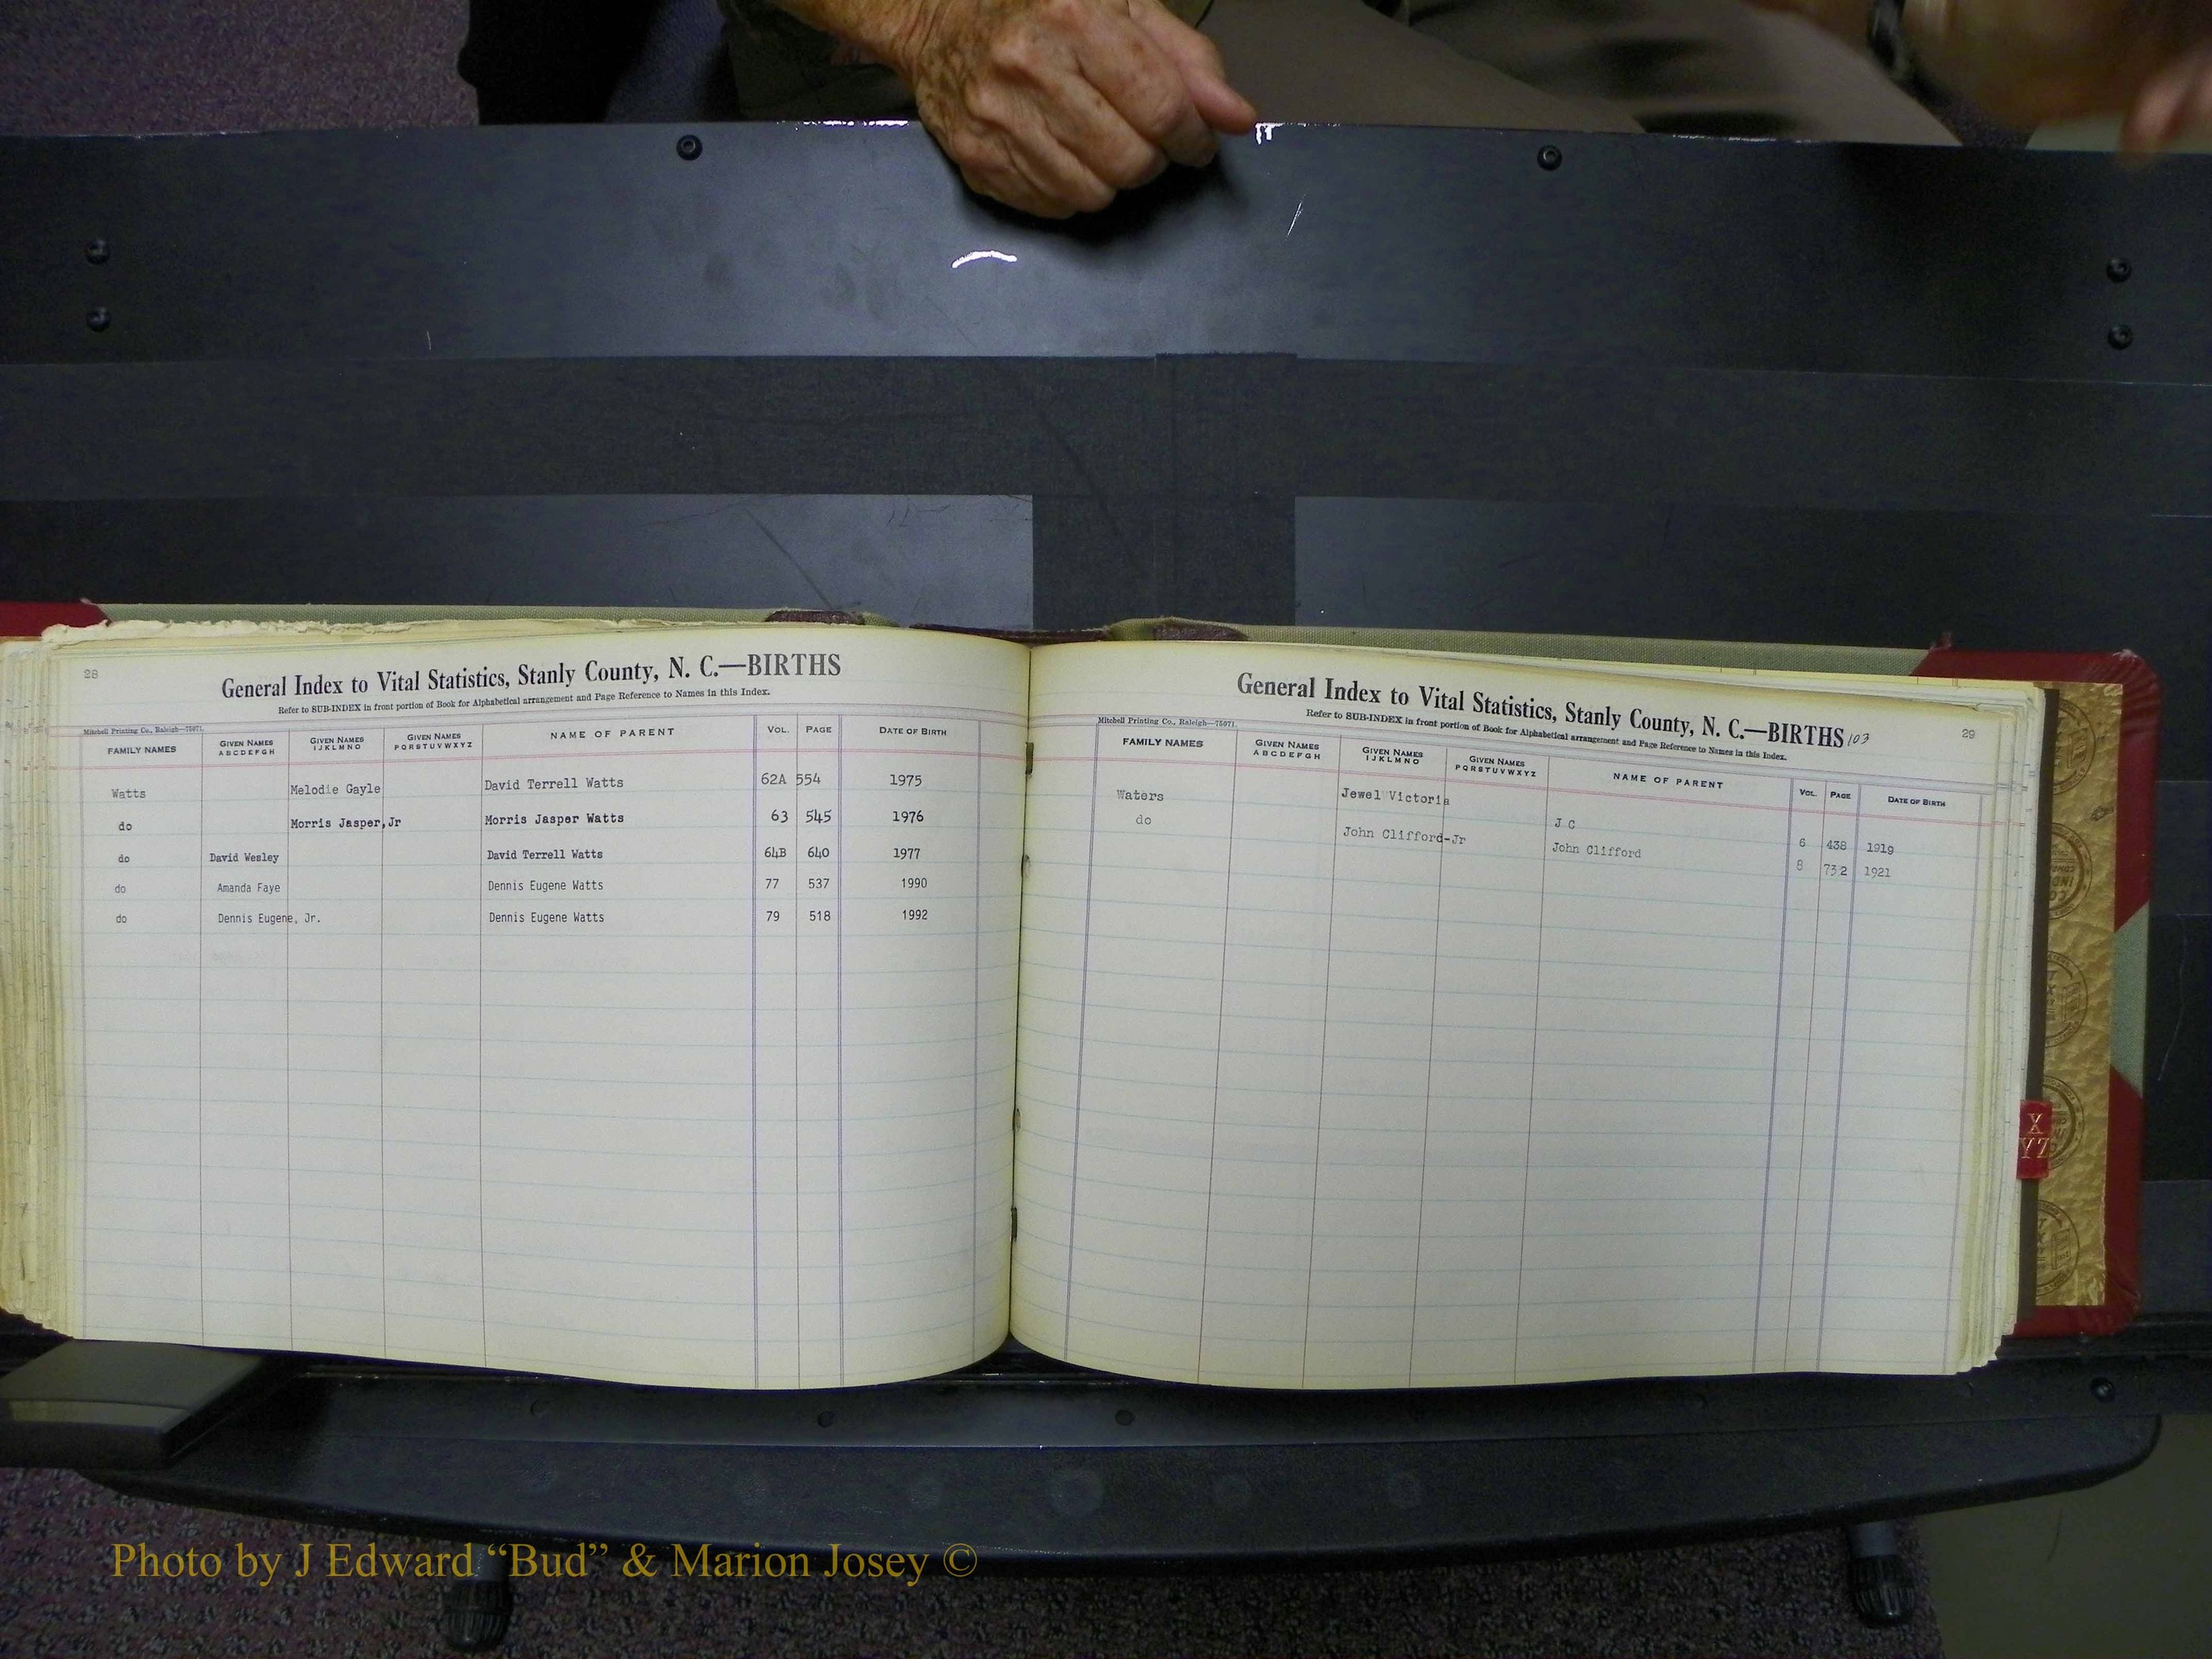 28
General Index to Vital Statistics, Stanly County, N. C.—BIRTHS
Refer to SUB-INDEX in front portion of Book for Alphabetical arrangement and Page Reference to Names in this Index.
Mitchell Printing Co., Raleigh—75071.
FAMILY NAMES GIVEN NAMES ABCDEFGH GIVEN NAMES IJKLMNO GIVEN NAMES PQRSTUVWXYZ NAME OF PARENT VOL. PAGE DATE OF BIRTH
Watts Melodie Gayle David Terrell Watts 62A 554 1975
do Morris Jasper,Jr Morris Jasper Watts 63 545 1976
do David Wesley David Terrell Watts 64B 640 1977
do Amanda Faye Dennis Eugene Watts 77 537 1990
do Dennis Eugene, Jr. Dennis Eugene Watts 79 518 1992
29
General Index to Vital Statistics, Stanly County, N. C.—BIRTHS 103
Refer to SUB-INDEX in front portion of Book for Alphabetical arrangement and Page Reference to Names in this Index.
Mitchell Printing Co., Raleigh—75071.
FAMILY NAMES GIVEN NAMES ABCDEFGH GIVEN NAMES IJKLMNO GIVEN NAMES PQRSTUVWXYZ NAME OF PARENT VOL. PAGE DATE OF BIRTH
Waters Jewel Victoria J C 6 438 1919
do John Clifford-Jr John Clifford 8 732 1921
X
YZ
Photo by J Edward “Bud” & Marion Josey ©